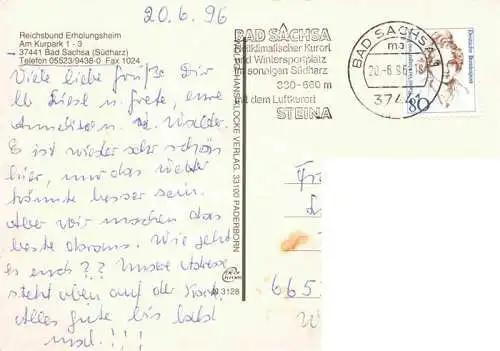 20.6.96
Reichsbund Erholungsheim
Am Kurpark 1 - 3
37441 Bad Sachsa (Südharz)
Telefon 05523/9438-0 Fax 1024
Viele liebe Grüße Dir
lb Liesel u. Grete, eure
Annelies u. Walter.
Es ist wieder sehr schön
hier, nur das Wetter
könnte besser sein.
Aber wir machen das
beste daraus. Wie geht
es euch?? Unsere Adresse
steht oben auf der Karte.
Alles gute bis bald
mal.!!!
BAD SACHSA
Heilklimatischer Kurort
und Wintersportplatz
im sonnigen Südharz
330-660 m
mit dem Luftkurort
STEINA
BAD SACHSA 1
ma
20.-6.96
37441
Deutsche Bundespost
80
LOCKE VERLAG, 33100 PADERBORN
N 3128
Fr
L
665
W